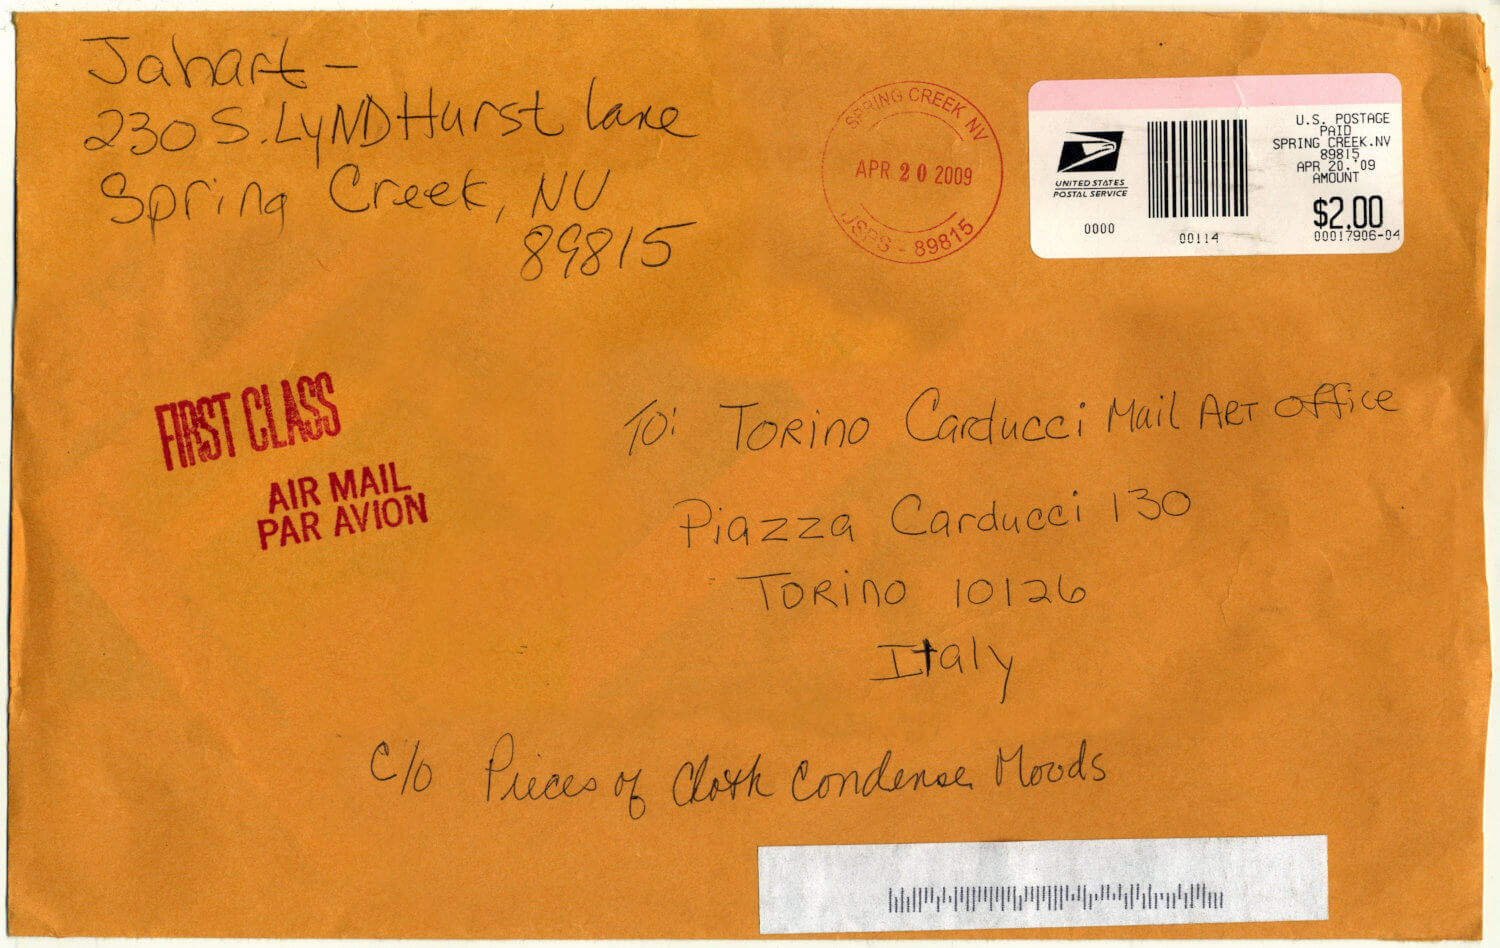 Jahart –
230 S. LyNDHurst Lane
Spring Creek, NV
89815
SPRING CREEK NV
APR 20 2009
USPS - 89815
UNITED STATES
POSTAL SERVICE
0000
00114
U.S. POSTAGE
PAID
SPRING CREEK.NV
89815
APR 20.'09
AMOUNT
$2.00
00017906-04
FIRST CLASS
AIR MAIL
PAR AVION
To: TORINO Carducci Mail ART Office
Piazza Carducci 130
TORINO 10126
Italy
c/o Pieces of Cloth Condense Moods